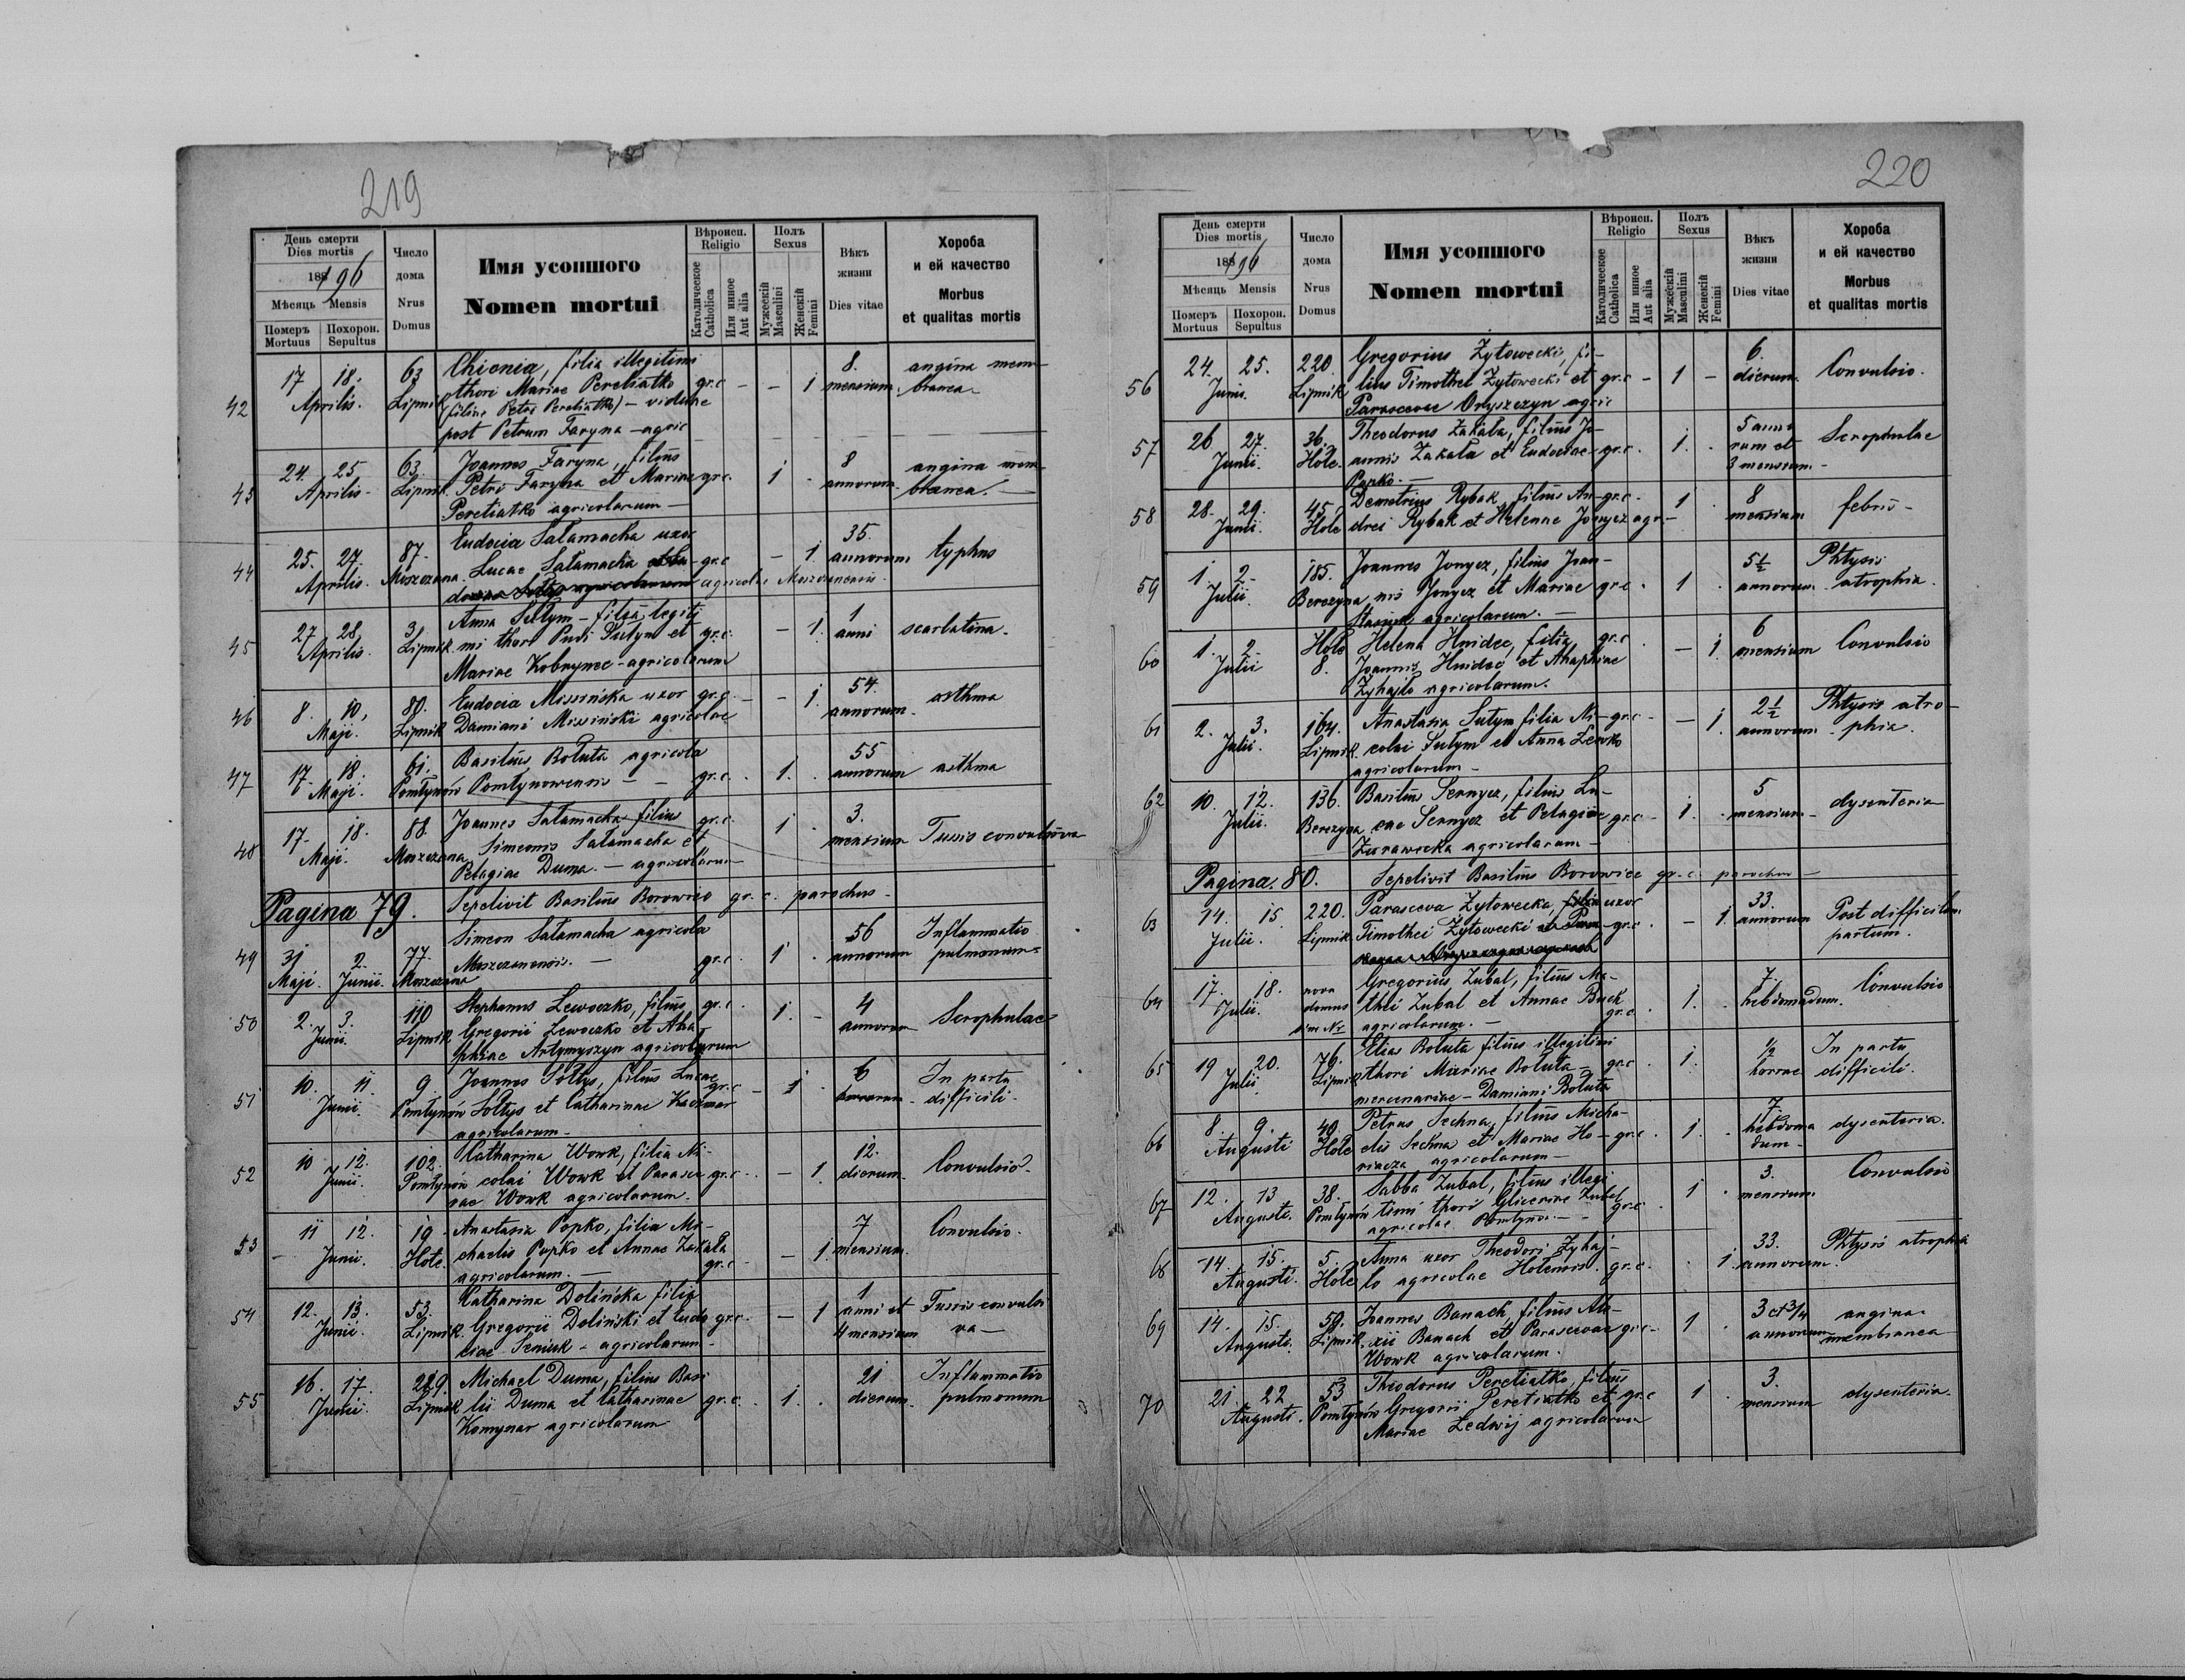 219
День смерти
Dies mortis
1896
Мѣсяць Mensis
Померъ Mortuus
Похорон. Sepultus
Число дома
Nrus Domus
Имя усопшого
Nomen mortui
Вѣроисп.
Religio
Католическое Catholica
Или инное Aut alia
Полъ
Sexus
Мужескій Masculini
Женскій Femini
Вѣкъ жизни
Dies vitae
Хороба
и ей качество
Morbus
et qualitas mortis
42 17 18. 63 Chionia, filia illegitimi
Aprilis. Lipnik thori Mariae Peretiatko gr.c - - 1 8. mensium angina mem-
branea
(filiae Petri Peretiatko) - viduae
post Petrum Faryna - agric
43 24. 25 63. Joannes Faryna, filius
Aprilis - Lipnik. Petri Faryna et Mariae gr.c. 1 8 annorum angina mem-
branea. -
Peretiatko agricolarum -
44 25. 27. 87. Eudocia Sałamacha uxor
Aprilis. Moszczana. Lucae Sałamacha gr.c - 1 35. annorum typhus
agricolae Moszczanensis
45 27 28. 3 Anna Sułym - filia legiti
Aprilis. Lipnik. mi thori Sułym et gr.c. - 1. 1 anni scarlatina.
Mariae Kobrynec - agricolarum
46 8. 10, 80. Eudocia Missińska uxor gr.c. - 1. 54. annorum asthma
Maji. Lipnik Damiani Missiński agricolae
47 17. 18. 61. Basilius Botuta agricola
Maji. Pomłynów Pomłynowensis - - gr.c. 1. 55 annorum asthma
48 17. 18. 88. Joannes Sałamacha filius gr.c. 1 3. mensium Tussis convulsiva
Maji. Moszczana. Simeonis Sałamacha et
Pelagiae Duma. - agricolarum
Pagina 79. Sepelivit Basilius Borowiec gr. c. parochus -
49 31 2. 77. Simeon Sałamacha agricola
Maji. Junii. Moszczana Moszczanensis. - gr.c. 1 56 annorum Inflammatio
pulmonum
50 2. 3. 110 Stephanus Lewoczko, filius gr.c. 1. 4 annorum Scrophulae
Junii. Lipnik Gregorii Lewoczko et Aha-
phiae Artymyszyn agricolarum
51 10. 11 9. Joannes Sołtys, filius Lucae
Junii. Pomłynów Sołtys et Catharinae gr.c - 1 6 horarum In partu
difficili.
agricolarum -
52 10 12. 102. Catharina Wowk, filia Ni-
Junii. Pomłynów colai Wowk et Parasce gr.c. - 1. 12. dierum Convulsio -
vae Wowk agricolarum.
53 11 12. 19. Anastasia Popko, filia Mi-
Junii. Hole. chaelis Popko et Annae Zakała gr.c - 1 7 mensium. Convulsio.
agricolarum. -
54 12. 13. 53. Catharina Dolińska filia
Junii. Lipnik. Gregorii Doliński et Eudo gr.c. - 1 1 anni et
4 mensium Tussis convulsi
va -
ciae Seniuk - agricolarum -
55 16. 17. 229. Michael Duma, filius Basi
Junii. Lipnik lii Duma et Catharinae gr.c. 1. 21 dierum Inflammatio
pulmonum
Komynar agricolarum
220
День смерти
Dies mortis
1896
Мѣсяць Mensis
Померъ Mortuus
Похорон. Sepultus
Число дома
Nrus Domus
Имя усопшого
Nomen mortui
Вѣроисп.
Religio
Католическое Catholica
Или инное Aut alia
Полъ
Sexus
Мужескій Masculini
Женскій Femini
Вѣкъ жизни
Dies vitae
Хороба
и ей качество
Morbus
et qualitas mortis
56 24. 25. 220. Gregorius Zytowecki, fi-
Junii. Lipnik lius Timothei Zytowecki et gr.c - 1 - 6. dierum Convulsio.
Parascevae Onyszczyn agric
57 26 27. 36. Theodorus Zakała, filius Jo-
Junii. Hole. annis Zakała et Eudociae gr.c. 1. 5 anno
rum et
3 mensium - Scrophulae
Popko. -
58 28. 29. 45. Demetrius Rybak, filius An- gr.c. 1 8 mensium febris -
Junii. Hole drei Rybak et Helenae Jonycz agr. -
59 1. 2. 185. Joannes Jonycz, filius Joan-
Julii. Berezyna nis Jonycz et Mariae gr.c. 1 5½ annorum Phtysis
atrophia.
Stasiuk agricolarum. -
60 1. 2. Hole Helena Hnidec, filia gr.c. - 1. 6 mensium Convulsio
Julii 8. Joannis Hnidec et Ahaphiae
Zyhajło agricolarum.
61 2. 3. 164. Anastasia Sułym filia Ni- gr.c - - 1. 2½ annorum Phtysis atro-
phia.
Julii. Lipnik. colai Sułym et Anna Lewko
agricolarum -
62 10. 12. 136. Basilius Sennycz, filius Lu-
Julii. Berezyna cae Sennycz et Pelagiae gr.c - 1. 5 mensium - dysenteria
Zurawecka agricolarum -
Pagina. 80. Sepelivit Basilius Borowiec gr.c. parochus -
63 14. 15 220. Parasceva Zytowecka, uxor
Julii. Lipnik Timothei Zytowecki gr.c. - 1. 33. annorum Post difficilem
partum.
64 17. 18. nova Gregorius Zubal, filius Ma-
Julii. domus thei Zubal et Annae Buck gr.c. 1. 7. hebdomadum. Convulsio
sine Nr agricolarum. -
65 19 20. 76. Elias Botuta filius illegitimi
Julii Lipnik thori Mariae Botuta - gr.c. 1. ½ horrae In partu
difficili.
mercenariae - Damiani Botuta
66 8. 9. 40. Petrus Sechna, filius Micha-
Augusti Hole elis Sechna et Mariae Ho- gr.c. 1. 7. hebdoma
dum - dysenteria.
agricolarum -
67 12. 13 38. Sabba Zubal, filius illegi
Augusti. Pomłynów timi thori Glicerine Zubal gr.c. 1 3. mensium Convulsio
agricolae Pomłynow -
68 14. 15. 5. Anna uxor Theodori Zyhaj-
Augusti. Hole ło agricolae Holensis. gr.c. 1 33. annorum. Phtysis atrophia
69 14. 15. 59. Joannes Banach, filius Ale-
Augusti. Lipnik. xii Banach et Parascevae gr.c - 1 3 et 3/4 annorum angina
membranea
Wowk agricolarum.
70 21. 22 53 Theodorus Peretiatko, filius
Augusti. Pomłynów Gregorii Peretiatko et gr.c 1 3. mensium dysenteria.
Mariae Ledwij agricolarum